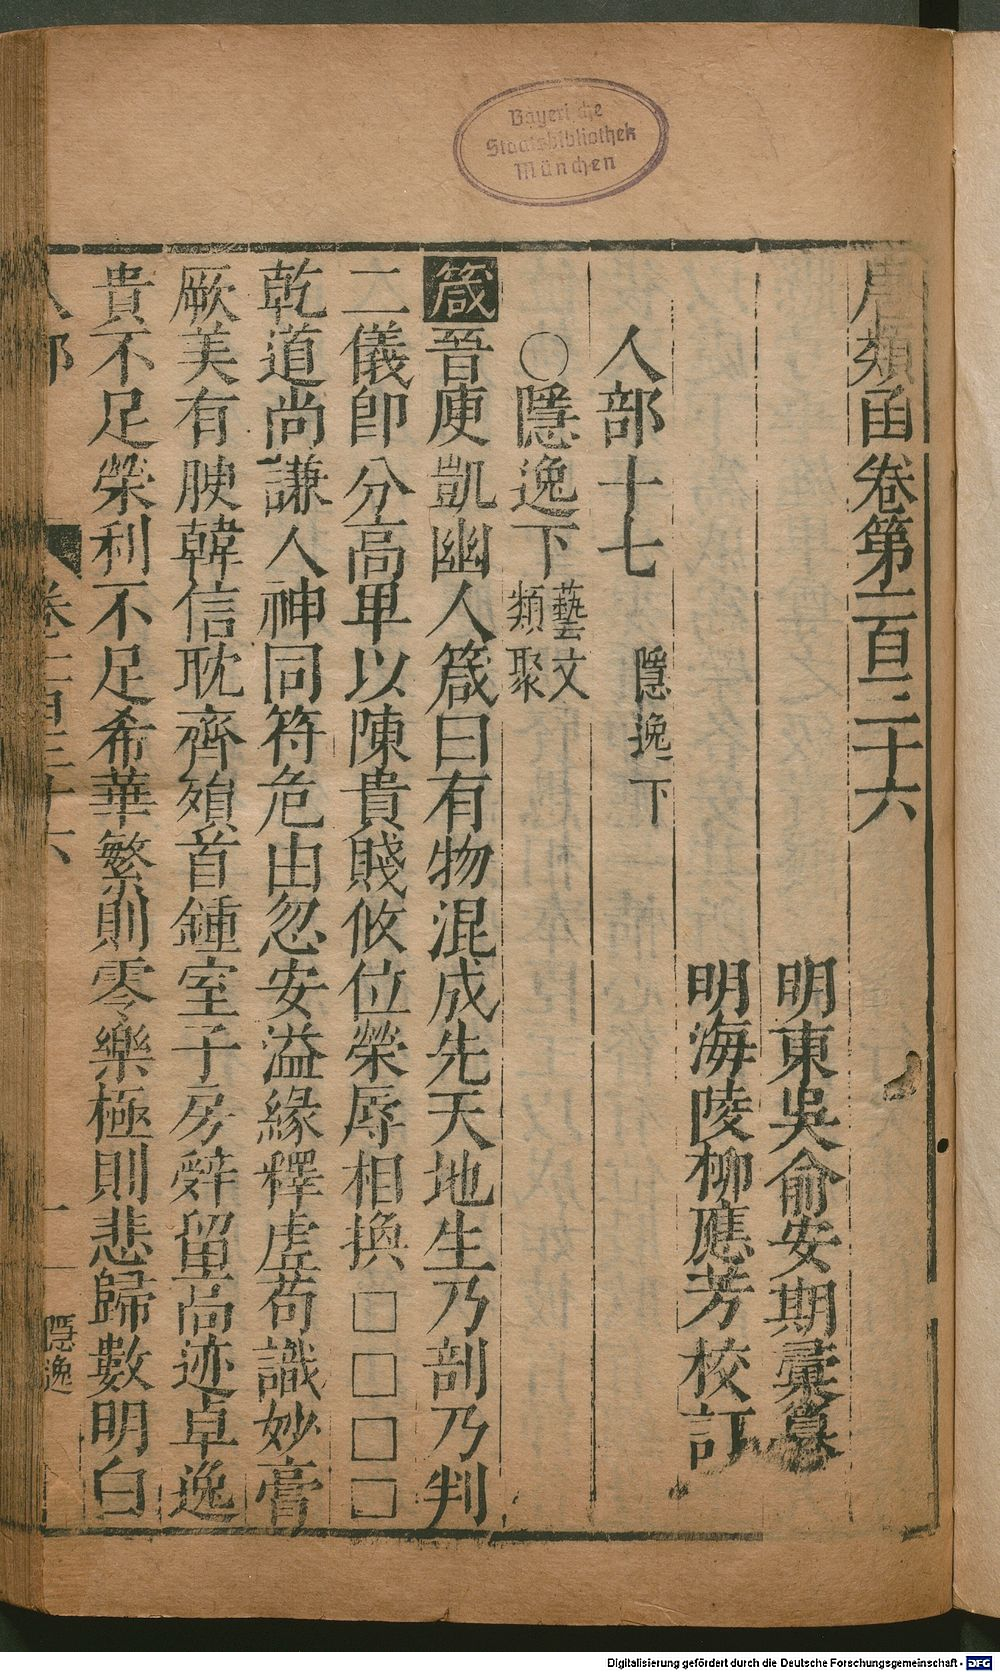 唐類函卷第一百三十六
明東吳俞安期彙纂
明海陵柳應芳校訂
人部十七 隱逸下
○隱逸下 藝文類聚
箴晉庾凱幽人箴曰有物混成先天地生乃剖乃判
二儀卽分高卑以陳貴賤攸位榮辱相換□□□□
乾道尚謙人神同符危由忽安溢緣釋虛苟識妙膏
厥美有腴韓信耽齊殞首鍾室子房辭留高迹卓逸
貴不足榮利不足希華繁則零樂極則悲歸數明白
人部
一
隱逸
Bayerische
Staatsbibliothek
München
Digitalisierung gefördert durch die Deutsche Forschungsgemeinschaft - DFG